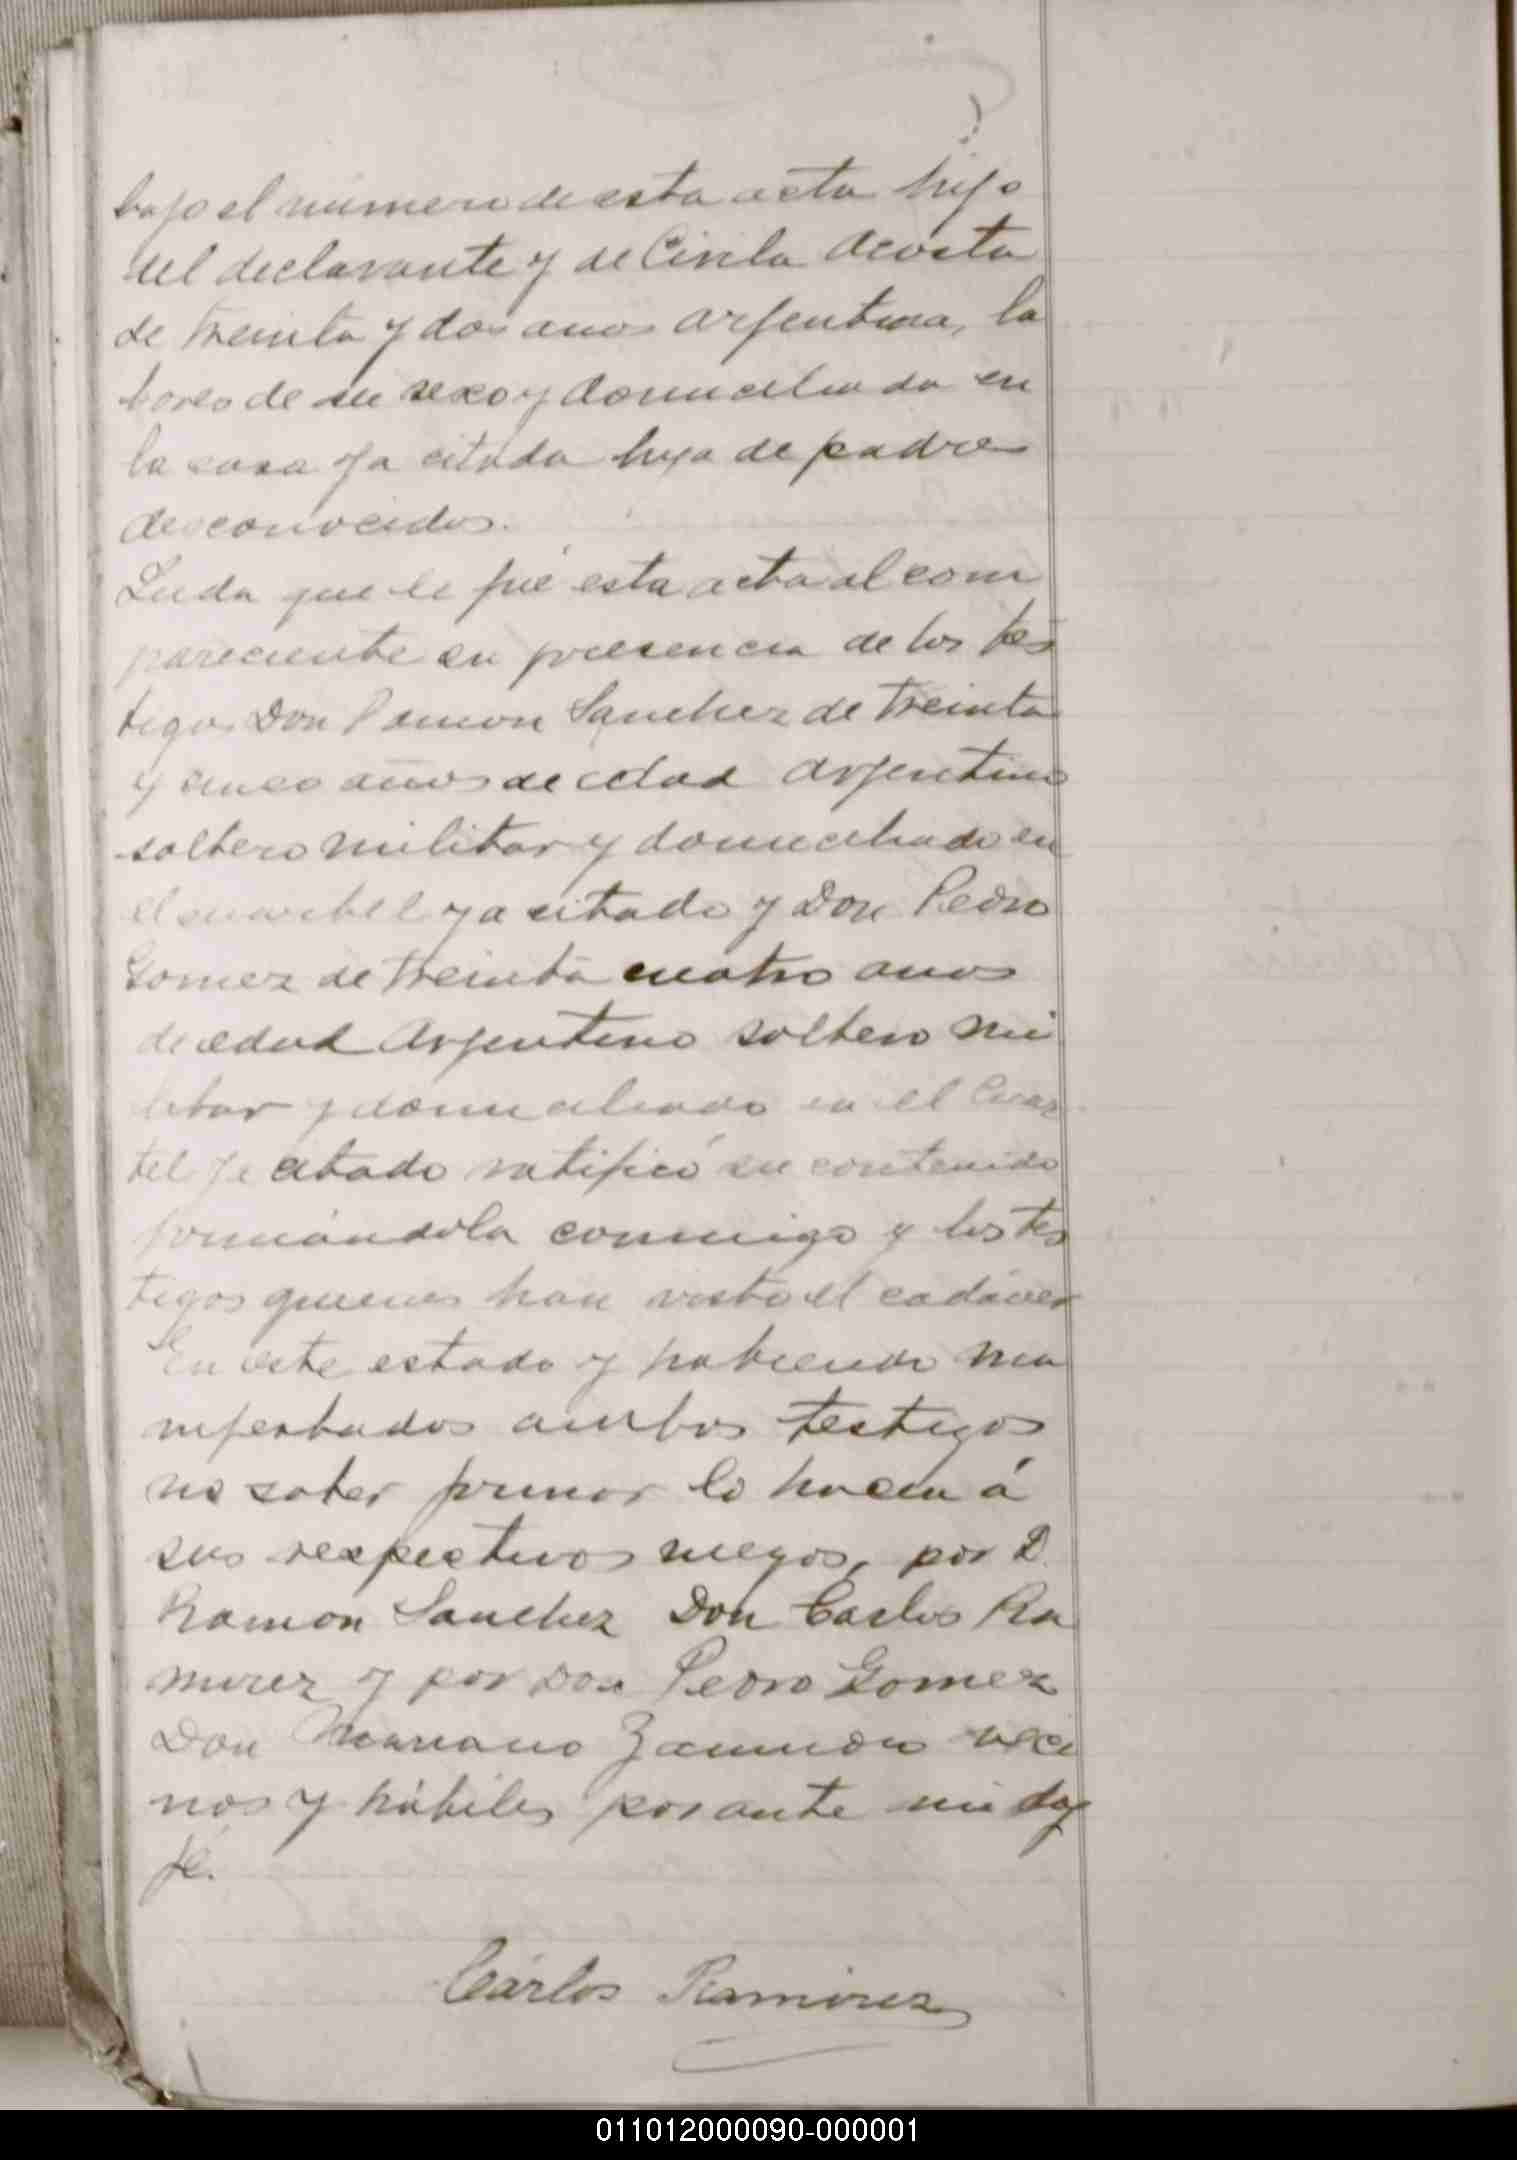 bajo el número de esta acta hijo
del declarante y de Cirila Acosta
de treinta y dos anos argentina, la
bores de su sexo y domiciliada en
la casa ya citada hija de padres
desconocidos.
Leida que le fué esta acta al com
pareciente en presencia de los tes
tigos Don Ramon Sanchez de treinta
y cinco años de edad argentino
soltero militar y domiciliado en
el cuartel ya citado y Don Pedro
Gomez de treinta cuatro anos
de edad argentino soltero mi
litar y domiciliado en el Cuar
tel ya citado ratificó su contenido
firmándola conmigo y los tes
tigos quienes han visto el cadáver
En este estado y habiendo ma
nifestados ambos testigos
no saber firmar lo hacen á
sus respectivos ruegos, por D.
Ramon Sanchez Don Carlos Ra
mirez y por Don Pedro Gomez
Don Mariano Zamudio veci
nos y hábiles por ante mi doy
fé.
Cárlos Ramirez
011012000090-000001